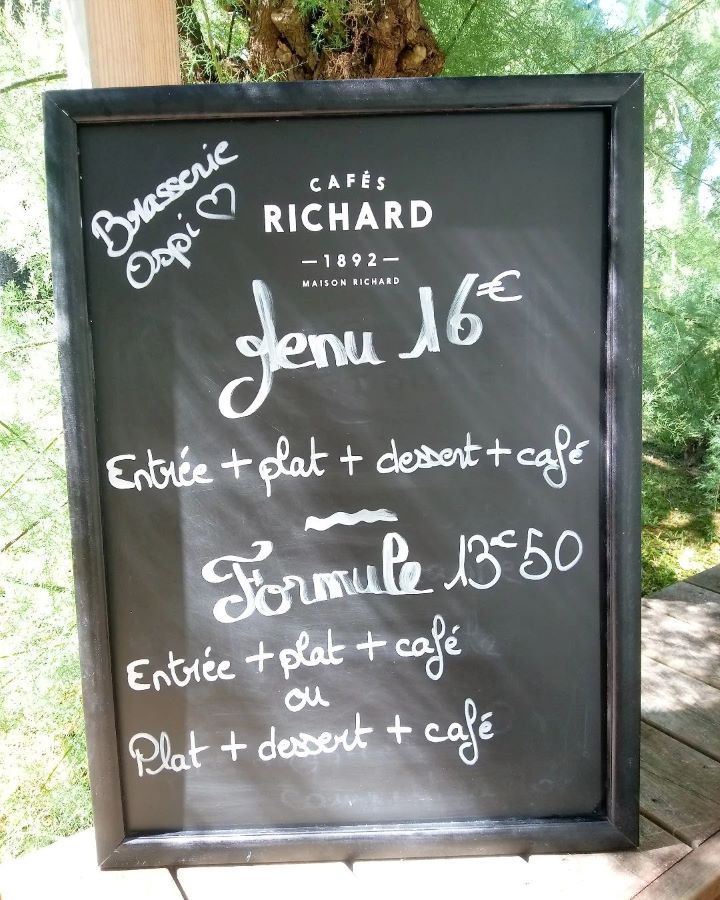 Brasserie
Ospi ♡
CAFÉS
RICHARD
—1892—
MAISON RICHARD
Menu 16€
Entrée + plat + dessert + café
Formule 13€50
Entrée + plat + café
ou
Plat + dessert + café